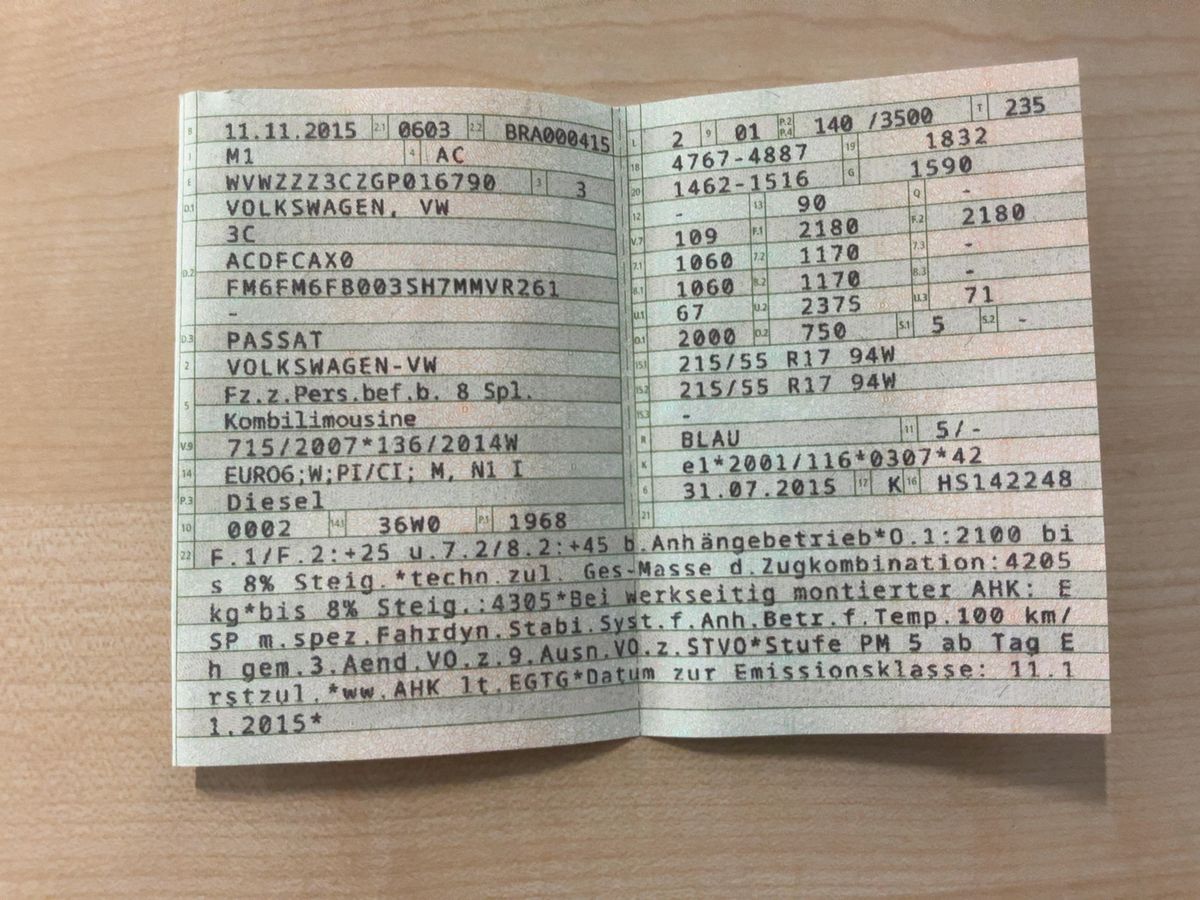 B 11.11.2015 2.1 0603 2.2 BRA000415
J M1 4 AC
E WVWZZZ3CZGP016790 3 3
D.1 VOLKSWAGEN, VW
3C
D.2 ACDFCAX0
FM6FM6FB003SH7MMVR261
-
D.3 PASSAT
2 VOLKSWAGEN-VW
5 Fz.z.Pers.bef.b. 8 Spl.
Kombilimousine
V.9 715/2007*136/2014W
14 EURO6;W;PI/CI; M, N1 I
P.3 Diesel
10 0002 14.1 36W0 P.1 1968
L 2 9 01 P.2 P.4 140 /3500 T 235
18 4767-4887 19 1832
20 1462-1516 G 1590
12 - 13 90 Q -
V.7 109 F.1 2180 F.2 2180
7.1 1060 7.2 1170 7.3 -
8.1 1060 8.2 1170 8.3 -
U.1 67 U.2 2375 U.3 71
O.1 2000 O.2 750 S.1 5 S.2 -
15.1 215/55 R17 94W
15.2 215/55 R17 94W
15.3 -
R BLAU 11 5/-
K e1*2001/116*0307*42
6 31.07.2015 17 K 16 HS142248
21
22 F.1/F.2:+25 u.7.2/8.2:+45 b.Anhängebetrieb*O.1:2100 bi
s 8% Steig.*techn.zul. Ges-Masse d.Zugkombination:4205
kg*bis 8% Steig.:4305*Bei werkseitig montierter AHK: E
SP m.spez.Fahrdyn.Stabi.Syst.f.Anh.Betr.f.Temp.100 km/
h gem.3.Aend.VO.z.9.Ausn.VO.z.STVO*Stufe PM 5 ab Tag E
rstzul.*ww.AHK lt.EGTG*Datum zur Emissionsklasse: 11.1
1.2015*